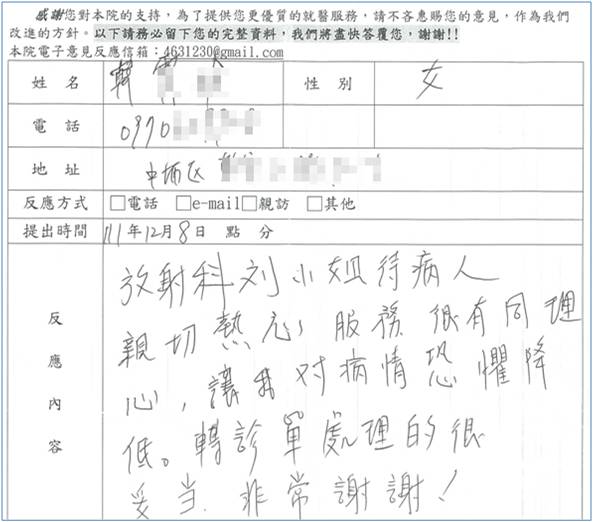 感謝您對本院的支持，為了提供您更優質的就醫服務，請不吝惠賜您的意見，作為我們
改進的方針。以下請務必留下您的完整資料，我們將盡快答覆您，謝謝!!
本院電子意見反應信箱：4631230@gmail.com
姓 名 韓 性 別 女
電 話 0970
地 址 中西区
反應方式 □電話 □e-mail□親訪 □其他
提出時間 111年12月8日 點 分
反應內容
放射科刘小姐待病人
親切熱心，服務很有同理
心，讓我对病情恐懼降
低。轉診單處理的很
妥当 非常謝謝！